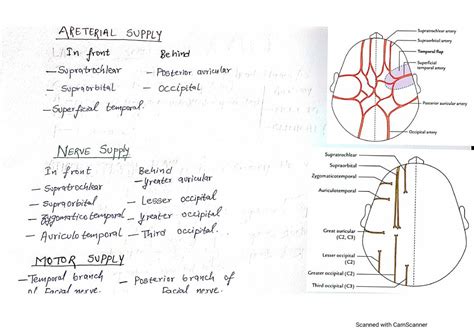 ARETERIAL SUPPLY
In front Behind
- Supratrochlear - Posterior auricular
- Supraorbital - Occipital
- Superficial temporal.
NERVE SUPPLY
In front Behind
- Supratrochlear - Greater auricular
- Supraorbital - Lesser occipital
- Zygomaticotemporal - Greater occipital
- Auriculotemporal - Third occipital.
MOTOR SUPPLY
- Temporal branch - Posterior branch of
of Facial nerve. Facial nerve.
Supratrochlear artery
Supraorbital artery
Temporal flap
Superficial
temporal artery
Posterior auricular artery
Occipital artery
Supratrochlear
Supraorbital
Zygomaticotemporal
Auriculotemporal
Great auricular
(C2, C3)
Lesser occipital
(C2)
Greater occipital (C2)
Third occipital (C3)
Scanned with CamScanner